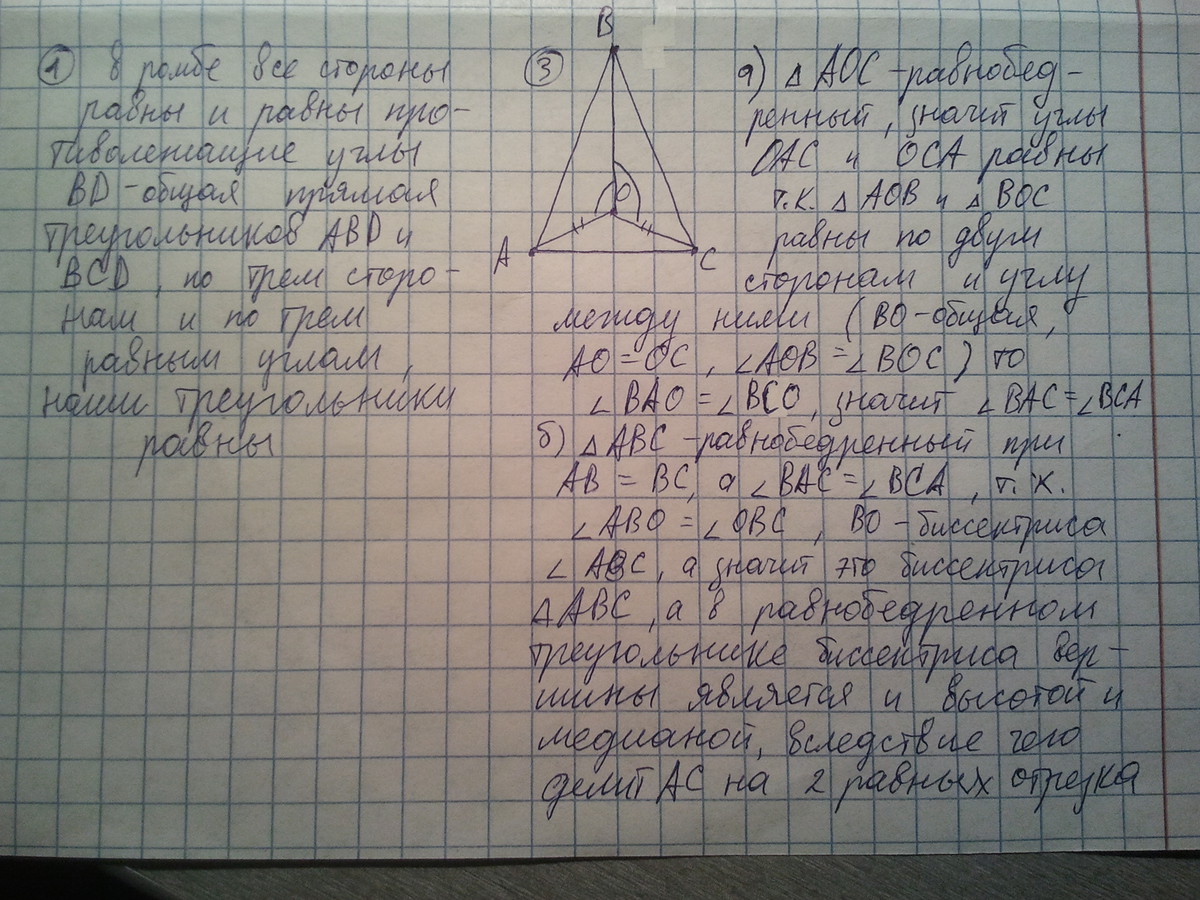 1 В ромбе все стороны
равны и равны про-
тиволежащие углы
BD - общая прямая
треугольников ABD и
BCD, по трем сторо-
нам и по трем
равным углам,
наши треугольники
равны
3
B
O
A
C
а) △ AOC - равнобед-
ренный, значит углы
OAC и OCA равны
т.к. △ AOB и △ BOC
равны по двум
сторонам и углу
между ними (BO - общая,
AO = OC, ∠AOB = ∠BOC) то
∠ BAO = ∠BCO, значит ∠BAC = ∠BCA
б) △ ABC - равнобедренный при
AB = BC, а ∠BAC = ∠BCA, т.к.
∠ABO = ∠OBC, BO - биссектриса
∠ ABC, а значит это биссектриса
△ ABC, а в равнобедренном
треугольнике биссектриса вер-
шины является и высотой и
медианой, вследствие чего
делит AC на 2 равных отрезка